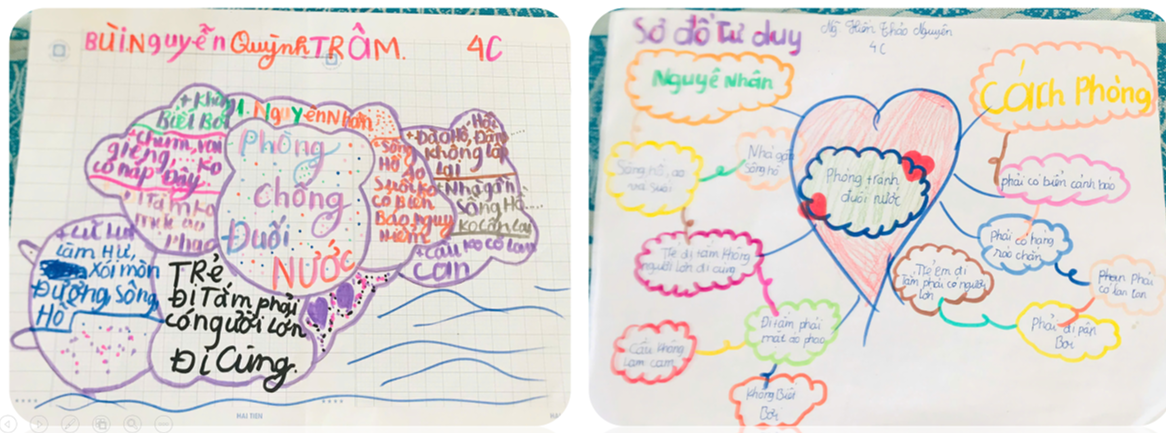 BÙI NGUYỄN QuỳnhTRÂM. 4C
+ Không
Biết Bơi
1. NguyênNhân
+ chum, vại
giếng, ko
có nắp Đậy.
Tắm ko
mặc áo
phao
Phòng
chống
Đuối
NƯỚC
+ Sông
Hồ Ao
Suối ko
có Biển
Báo nguy
hiểm
Hồ,
+ Đào Hố, Đầm
không lấp
lại
+ Nhà gần
Sông Hồ
+ cầu ko có lan
can
làm Hư,
Xói mòn
Đường, Sông,
Hồ
TRẻ
Đi Tắm phải
có người lớn
Đi cùng.
HAI TIEN
Sơ đồ Tư duy
Thảo Nguyên
4C
Nguyên Nhân
Cách Phòng
Sông hồ, ao
Nhà gần
sông hồ
Phòng tránh
đuối nước
phải có biển cảnh báo
Phải có hàng
rào chắn
Trẻ đi tắm không
người lớn đi cùng
Trẻ em đi
tắm phải có người
lớn
Phải
có lan can
Đi tắm phải
mặt áo phao
Bơi
Cầu không
lam cam
Không Biết
Bơi